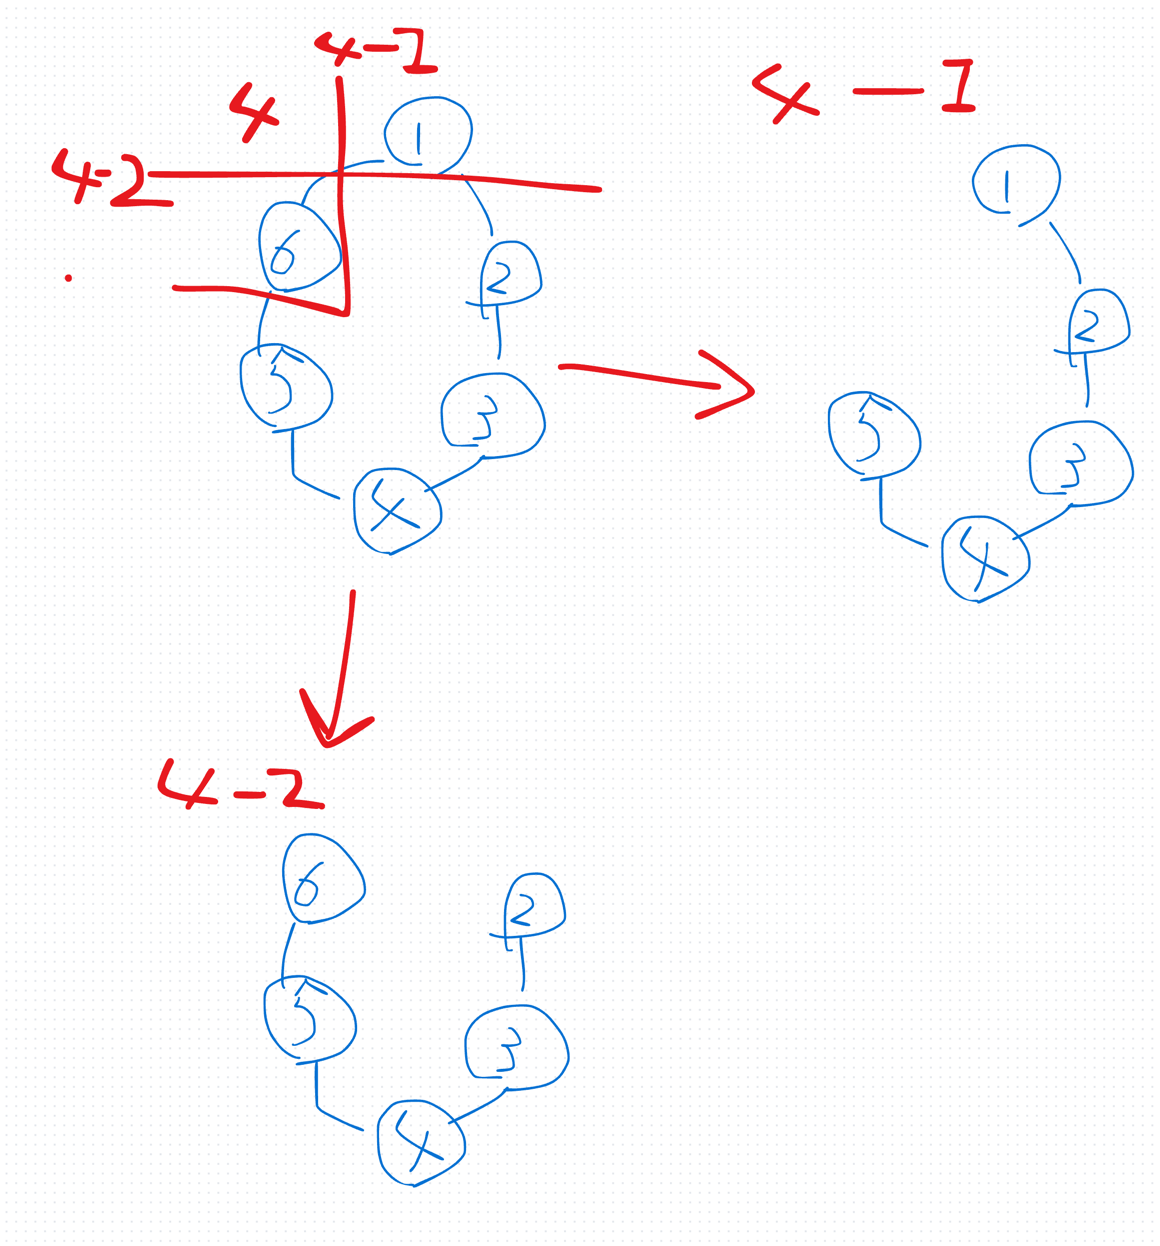 4-1
4
4-1
4-2
1
6
2
5
3
4
1
2
5
3
4
4-2
6
2
5
3
4